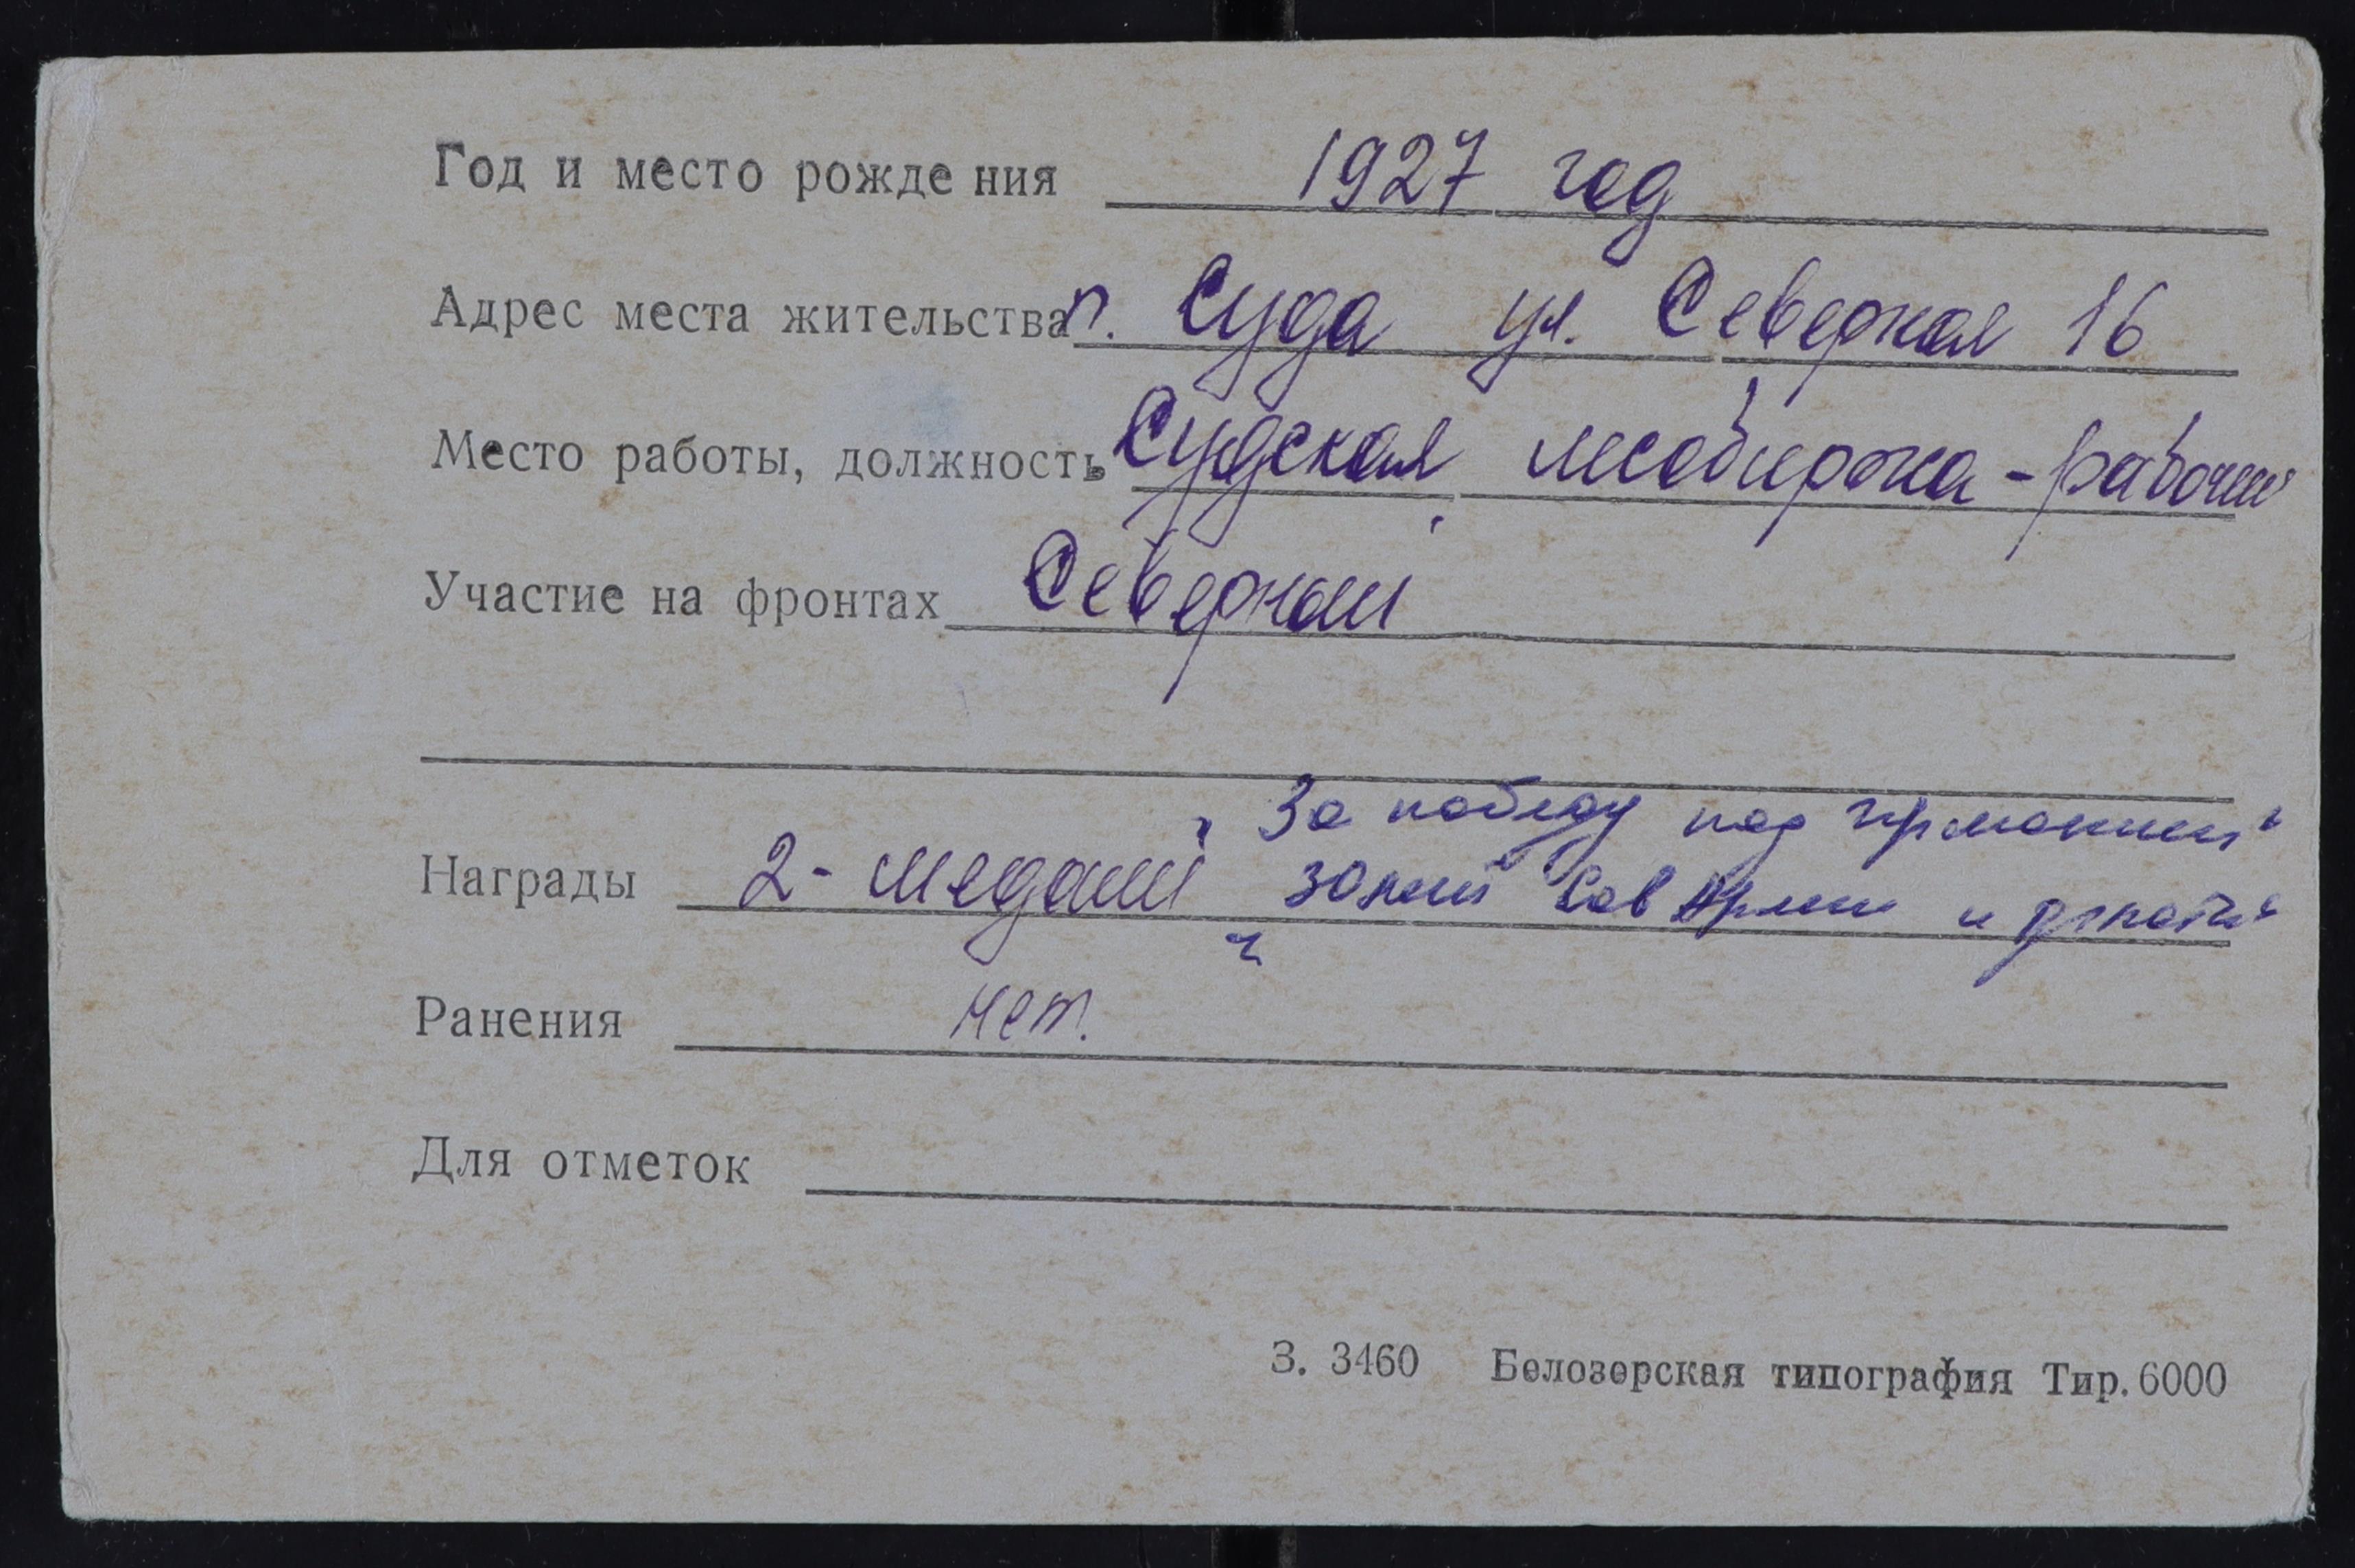 Год и место рождения 1927 год
Адрес места жительства п. Суда ул. Северная 16
Место работы, должность Судская лесобиржа - рабочий
Участие на фронтах Северный
„За победу над германией“
Награды 2 - медали „30 лет Сов Армии и флота“
Ранения нет.
Для отметок
З. 3460 Белозерская типография Тир. 6000